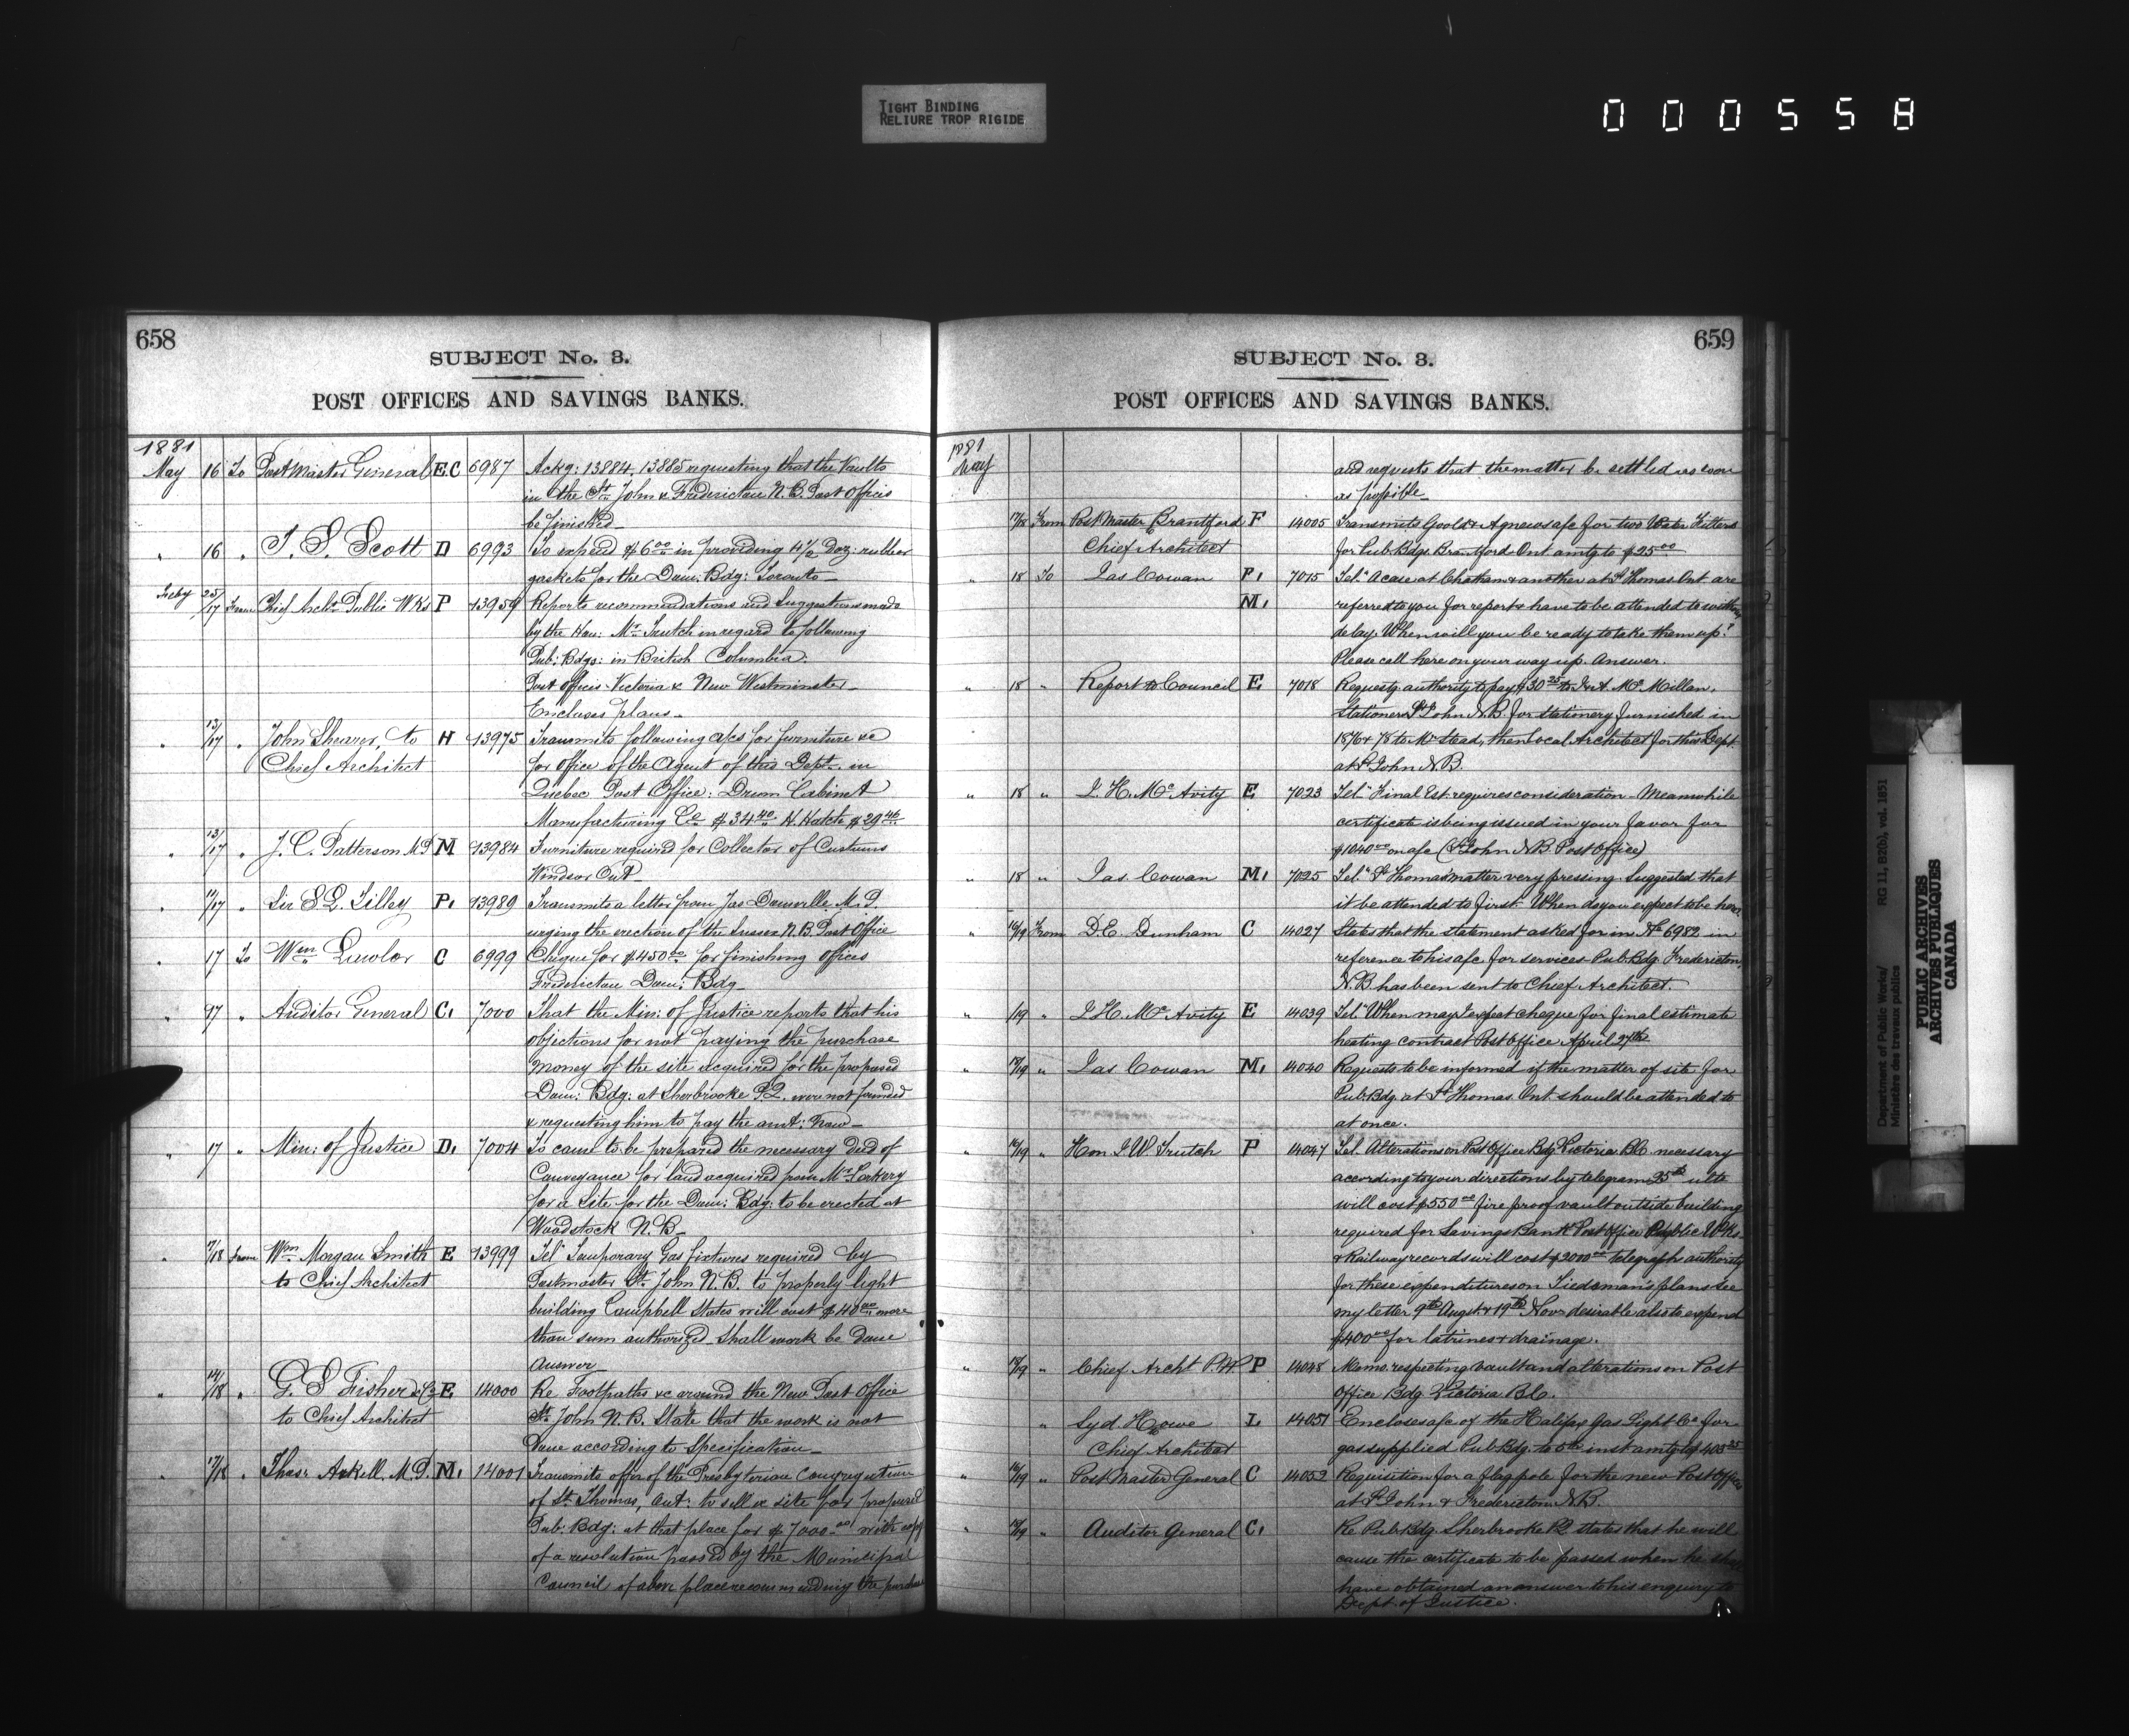 TIGHT BINDING
RELIURE TROP RIGIDE
000558
658
SUBJECT No. 3.
POST OFFICES AND SAVINGS BANKS.
1881
May 16 To Post Master General E.C 6987 Ackg: 13884, 13885 requesting that the Vaults
in the St. John & Fredericton N.B. Post Offices
be finished
" 16 " T. S. Scott D 6993 To expend $6.00 in providing 4½ Doz: rubber
gaskets for the Dom: Bdg: Toronto
Feby 25/17 From Chief Archt Public Wks P 13959 Reports recommendations and Suggestions made
by the Hon: Mr. Trutch in regard to following
Pub: Bdgs: in British Columbia:
Post offices Victoria & New Westminster
Encloses plans
" 13/17 " John Shearer, to H 13975 Transmits following a/cs for furniture &c
Chief Architect for office of the Agent of this Dept. in
Quebec Post Office: Drum Cabinet
Manufacturing Co $34.40 H. Hatch $29.46
" 13/17 " J. C. Patterson M.P M 13984 Furniture required for Collector of Customs
Windsor Ont
" /17 " Sir S. L. Tilley P. 13989 Transmits a letter from Jas Domville M.P.
urging the erection of the Sussex N.B. Post Office
" 17 To Wm Lawlor C 6999 Cheque for $450.00 for finishing offices
Fredericton Dom: Bdg
" 17 Auditor General C. 7000 That the Min: of Justice reports that his
objections for not paying the purchase
money of the site acquired for the proposed
Dom: Bdg: at Sherbrooke P.Q. were not founded
& requesting him to pay the amt: now
" 17 " Min: of Justice D. 7004 To cause to be prepared the necessary deed of
Conveyance for land acquired from Mr.
for a Site for the Dom: Bdg: to be erected at
Woodstock N.B
" 17/18 From Wm Morgan Smith E 13999 Tel: Temporary Gas fixtures required by
to Chief Architect Postmaster St. John N.B. to properly light
building Campbell States will cost $40.00 more
than sum authorized. Shall work be done
Answer
" 14/18 " G. S Fisher & Co E. 14000 Re Footpaths &c around the New Post Office
to Chief Architect St. John N.B. State that the work is not
Done according to Specification
" 17/18 " Thos: Arkell, M.P. M. 14001 Transmits offer of the Presbyterian Congregation
of St. Thomas, Ont: to sell a site for proposed
Pub: Bdg: at that place for $7000.00 with copy
of a resolution passed by the Municipal
Council of above place recommending the purchase
659
SUBJECT No. 3.
POST OFFICES AND SAVINGS BANKS.
1881
May and requests that the matter be settled as soon
as possible
17/18 From Post Master Brantford F 14005 Transmits Goold & Agnews a/c for two Water Filters
to Chief Architect for Pub. Bdgs. Brantford Ont amtg to $25.00
" 18 To Jas Cowan P. 7015 Tel: A case at Chatham & another at St Thomas Ont are
M. referred to you for report & have to be attended to without
delay. When will you be ready to take them up?
Please call here on your way up. Answer.
" 18 " Report to Council E 7018 Requests authority to pay $30.25 to J. & A. McMillan,
Stationers St John N.B. for stationery furnished in
1876 & 78 to Mr Stead, then Local Architect for this Dept.
at St John N.B.
" 18 " J. H. McAvity E 7023 Tel: Final Est. requires consideration. Meanwhile
certificate is being issued in your favor for
$1040.00 on a/c (St John N.B. Post Office)
" 18 " Jas Cowan M. 7025 Tel: St Thomas matter very pressing. Suggested that
it be attended to first. When do you expect to be here
" 16/19 From D. E. Dunham C 14027 States that the statement asked for in No 6982 in
reference to his a/c for services Pub. Bdg. Fredericton,
N.B has been sent to Chief Architect.
" /19 " J. H. McAvity E 14039 Tel: When may I expect cheque for final estimate
heating contract Post Office April 27th
" 18/19 " Jas Cowan M. 14040 Requests to be informed if the matter of site for
Pub. Bdg. at St Thomas Ont. should be attended to
at once.
" 16/19 " Hon J. W. Trutch P 14047 Tel. Alterations on Post Office Bdg Victoria B.C. necessary
according to your directions by telegram 25th ulto
will cost $550.00 fire proof vault outside building
required for Savings Bank Post Office Public Wks
& Railway records will cost $2000.00 telegraph authority
for these expenditures on Tiedeman's plans see
my letter 9th August & 19th Novr desirable also to expend
$400.00 for latrines & drainage.
" 18/19 " Chief Archt P.W. P 14048 Memo. respecting vault and alterations on Post
Office Bdg Victoria B.C.
" Syd. Howe L 14051 Encloses a/c of the Halifax Gas Light Co for
to Chief Architect gas supplied Pub. Bdg. to 5th inst amtg to $403.25
" 16/19 " Post Master General C 14052 Requisition for a flag pole for the new Post Offices
at St John & Fredericton N.B.
" 18/19 " Auditor General C. Re Pub. Bdg. Sherbrooke P.Q. states that he will
cause the certificate to be passed when he shall
have obtained an answer to his enquiry to
Dept. of Justice.
Department of Public Works/ RG 11, B2(b), vol. 1851
Ministère des travaux publics
PUBLIC ARCHIVES
ARCHIVES PUBLIQUES
CANADA